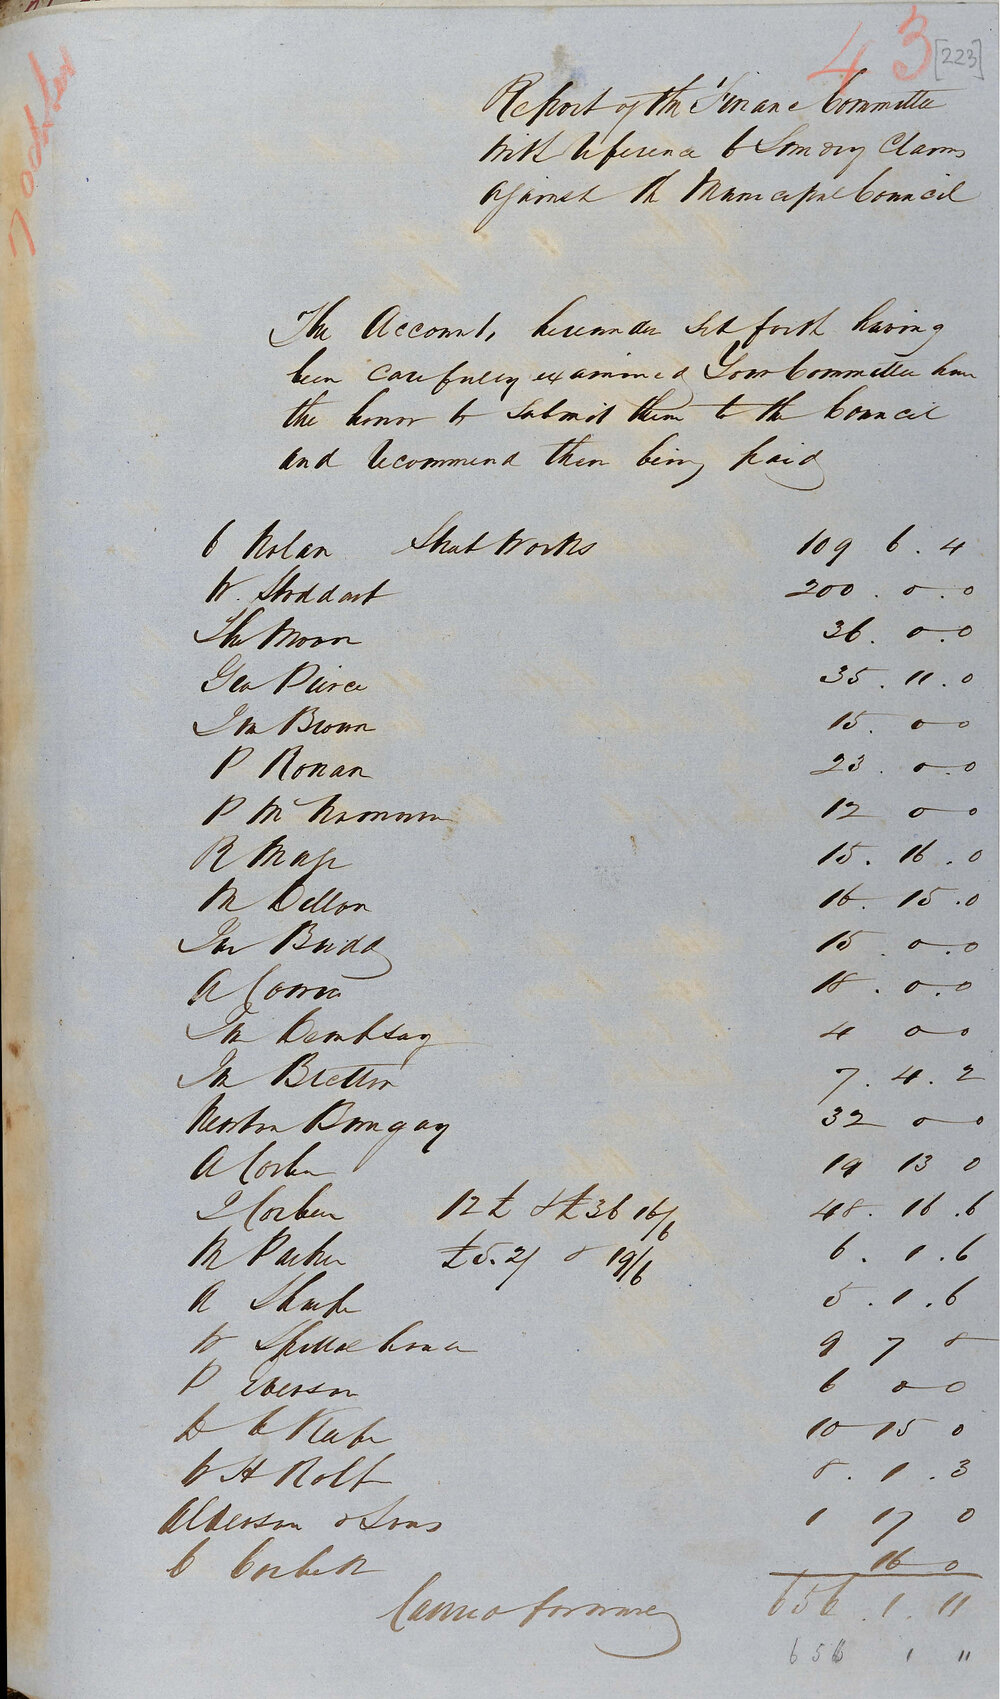 43 [223]
7 October
Report of the Finance Committee
with reference to Sundry Claims
against the Municipal Council
The Accounts hereunder set forth having
been carefully examined Your Committee have
the honor to submit them to the Council
and recommend them being paid
C Nolan Street Works 109 6 . 4
W. Stoddart 200 . 0 . 0
Tho Moore 36 . 0 . 0
Geo Pierce 35 . 11 . 0
Jno Brown 15 . 0 0
P Ronan 23 . 0 . 0
P McNamara 12 0 0
R 15 . 16 . 0
M Dillon 16 . 15 . 0
Jno Budd 15 0 . 0
A 18 . 0 . 0
Jno Dembsay 4 0 0
Jno Bretton 7 . 4 . 2
Newton Bungay 32 0 0
A Corben 19 13 0
J Corben 12 £ & £36 16/6 48 . 16 . 6
M Parker £5 . 2/ & 19/6 6 . 1 . 6
A Sharpe 5 . 1 . 6
W 9 7 8
P Everson 6 0 0
10 15 0
W H Rolf 8 . 1 . 3
Alderson & Sons 1 17 0
C Corbett 16 0
Carried forward 656 . 1 . 11
656 1 11